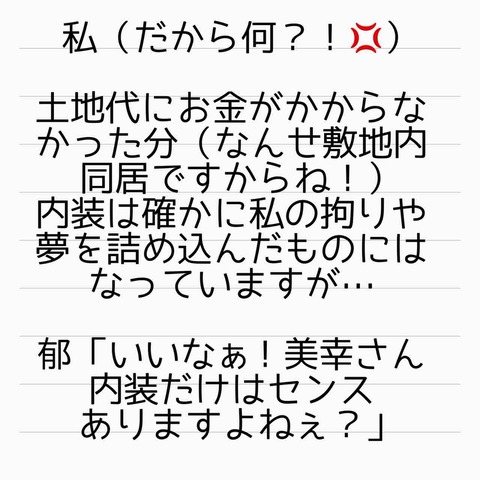 私（だから何？！💢）
土地代にお金がかからな
かった分（なんせ敷地内
同居ですからね！）
内装は確かに私の拘りや
夢を詰め込んだものには
なっていますが…
郁「いいなぁ！美幸さん
内装だけはセンス
ありますよねぇ？」